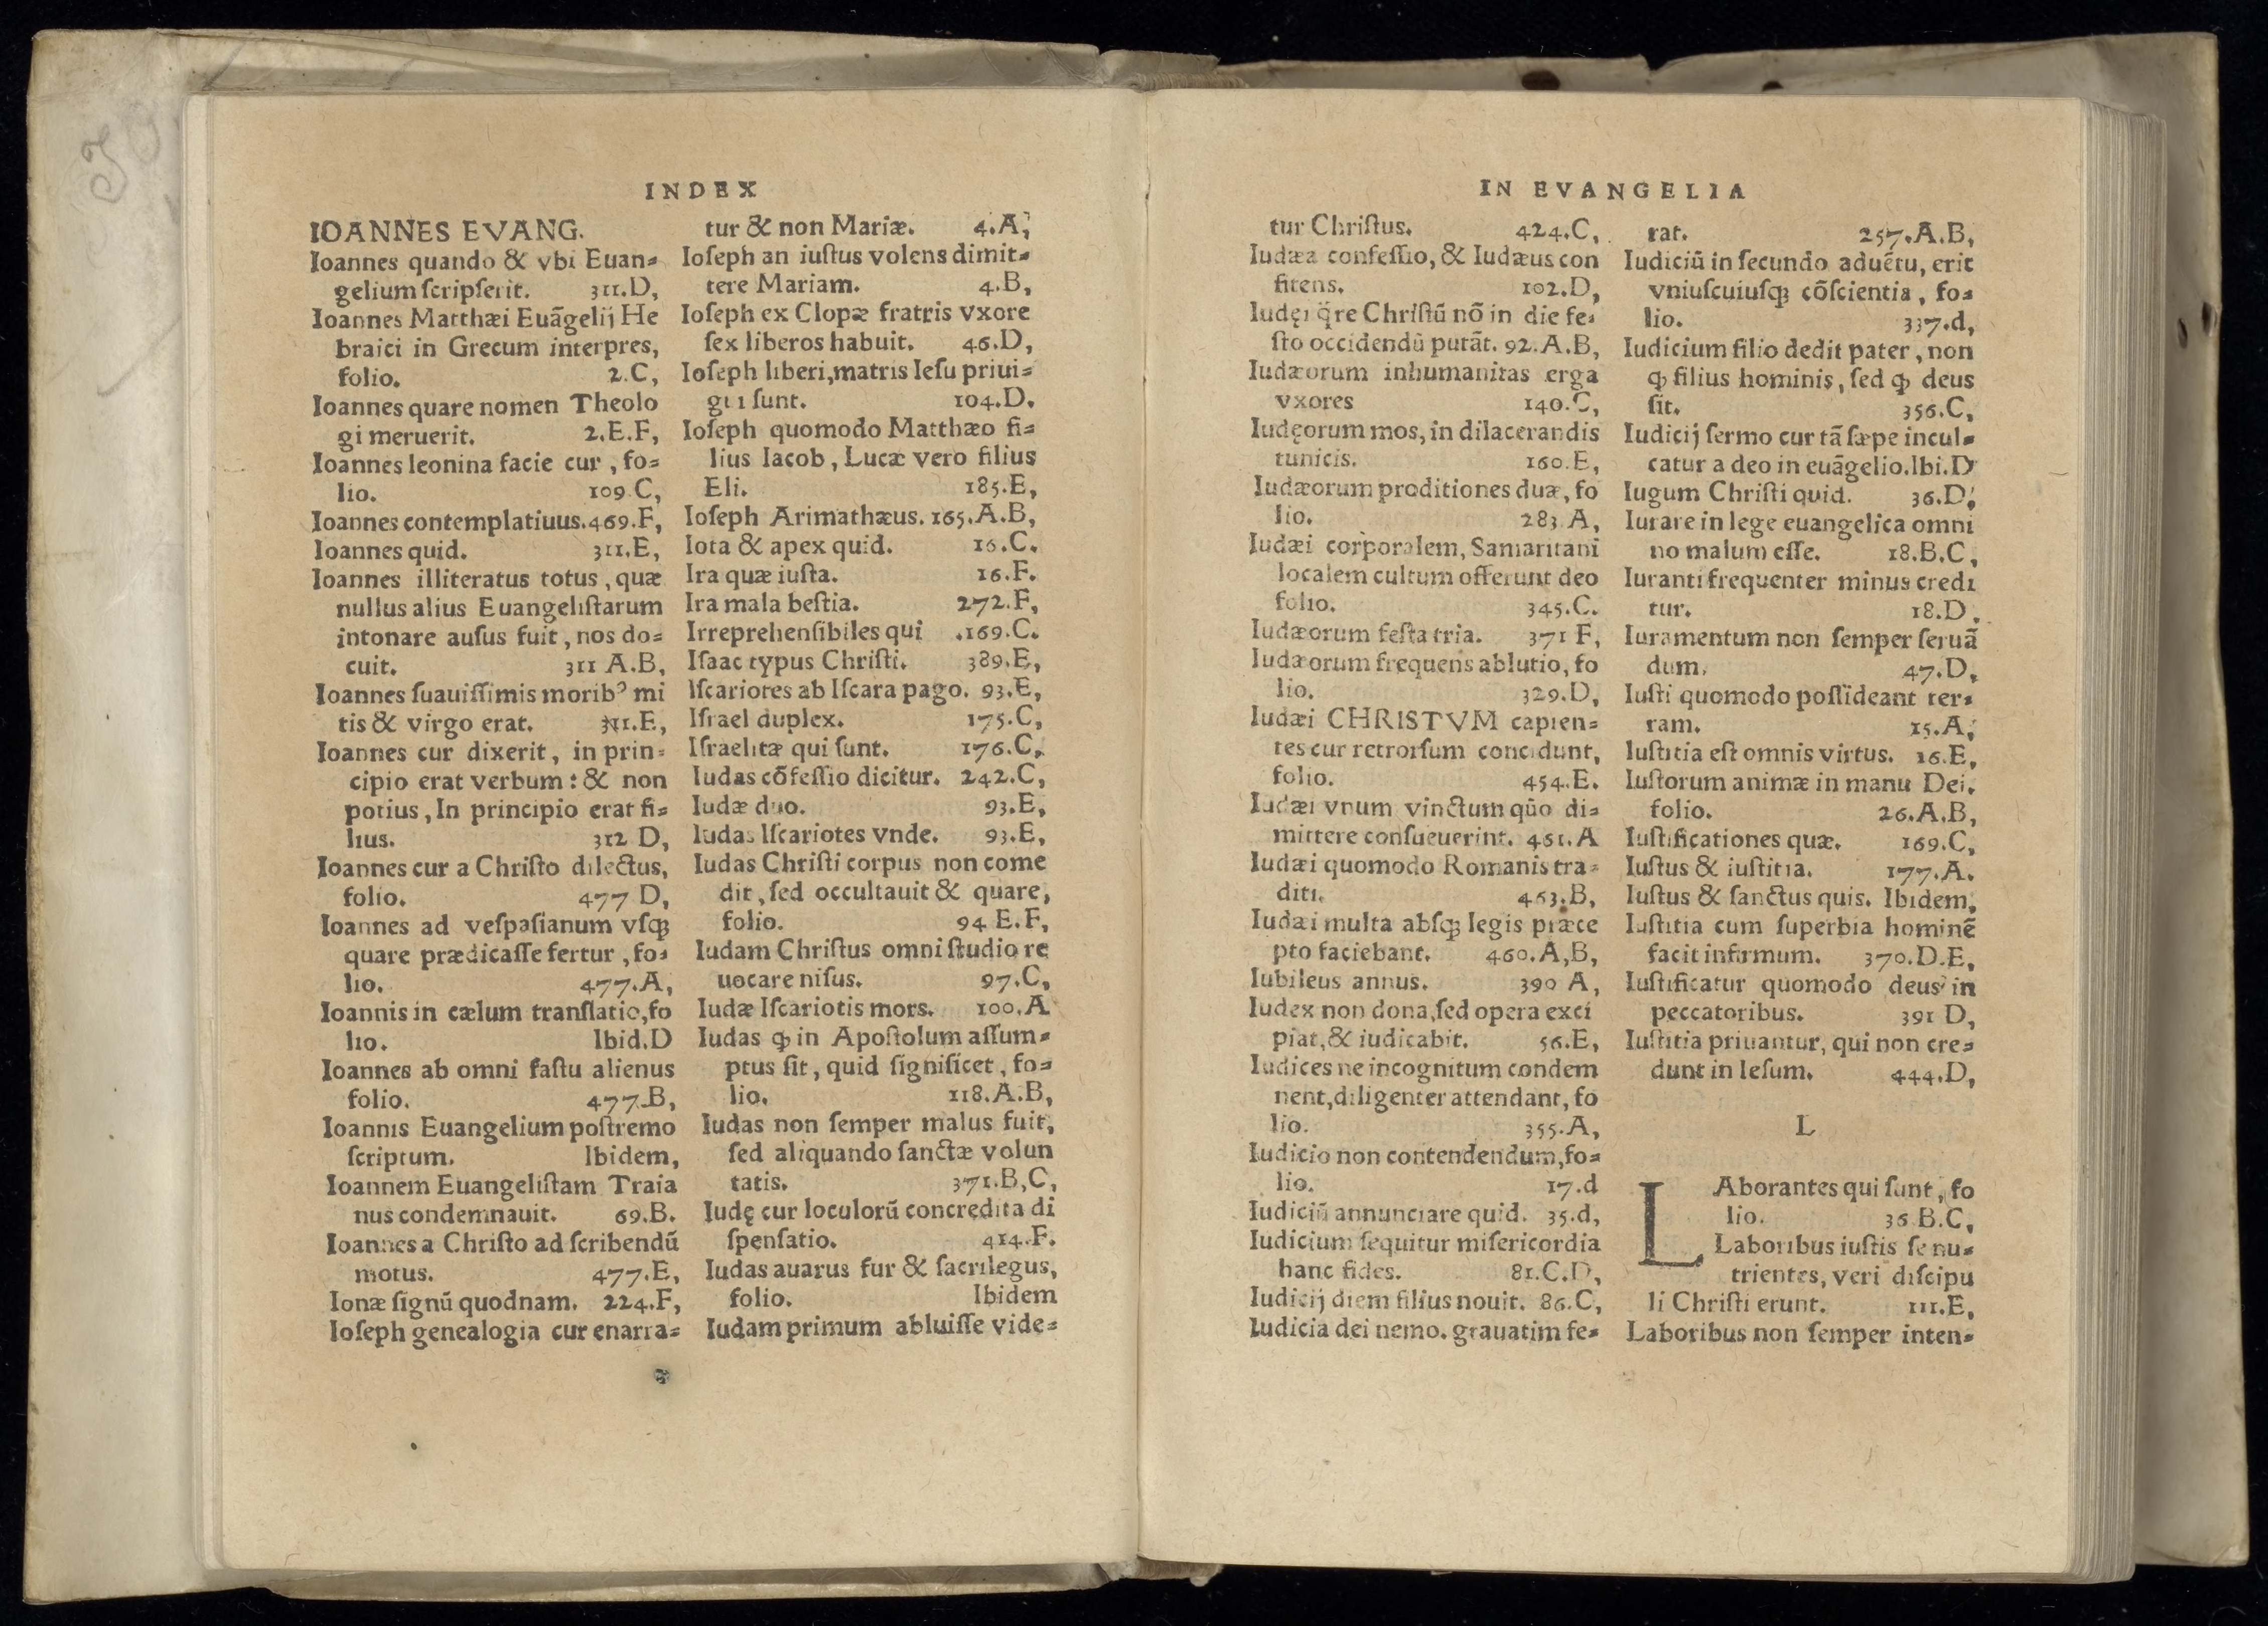 INDEX
IOANNES EVANG.
Ioannes quando & vbi Euan=
gelium ſcripſerit. 311.D,
Ioannes Matthæi Euãgelij He
braici in Grecum interpres,
folio. 2.C,
Ioannes quare nomen Theolo
gi meruerit. 2.E.F,
Ioannes leonina facie cur, fo=
lio. 109.C,
Ioannes contemplatiuus. 469.F,
Ioannes quid. 311.E,
Ioannes illiteratus totus, quæ
nullus alius Euangeliſtarum
intonare auſus fuit, nos do=
cuit. 311 A.B,
Ioannes ſuauiſſimis moribꝰ mi
tis & virgo erat. 311.E,
Ioannes cur dixerit, in prin=
cipio erat verbum: & non
potius, In principio erat fi=
lius. 312 D,
Ioannes cur a Chriſto dilectus,
folio. 477 D,
Ioannes ad veſpaſianum vſqꝫ
quare prædicaſſe fertur, fo=
lio. 477.A,
Ioannis in cælum tranſlatio, fo
lio. Ibid.D
Ioannes ab omni faſtu alienus
folio. 477.B,
Ioannis Euangelium poſtremo
ſcriptum. Ibidem,
Ioannem Euangeliſtam Traia
nus condemnauit. 69.B.
Ioannes a Chriſto ad ſcribendũ
motus. 477.E,
Ionæ ſignũ quodnam. 224.F,
Ioſeph genealogia cur enarra=
tur & non Mariæ. 4.A,
Ioſeph an iuſtus volens dimit=
tere Mariam. 4.B,
Ioſeph ex Clopæ fratris vxore
ſex liberos habuit. 46.D,
Ioſeph liberi, matris Ieſu priui=
gni ſunt. 104.D.
Ioſeph quomodo Matthæo fi=
lius Iacob, Lucæ vero filius
Eli. 185.E,
Ioſeph Arimathæus. 165.A.B,
Iota & apex quid. 16.C.
Ira quæ iuſta. 16.F.
Ira mala beſtia. 272.F,
Irreprehenſibiles qui .169.C.
Iſaac typus Chriſti. 389.E,
Iſcariotes ab Iſcara pago. 93.E,
Iſrael duplex. 175.C,
Iſraelitæ qui ſunt. 176.C,
Iudas cõfeſſio dicitur. 242.C,
Iudæ duo. 93.E,
Iudas Iſcariotes vnde. 93.E,
Iudas Chriſti corpus non come
dit, ſed occultauit & quare,
folio. 94 E.F,
Iudam Chriſtus omni ſtudio re
uocare niſus. 97.C,
Iudæ Iſcariotis mors. 100.A
Iudas ꝙ in Apoſtolum aſſum=
ptus ſit, quid ſignificet, fo=
lio. 118.A.B,
Iudas non ſemper malus fuit,
ſed aliquando ſanctæ volun
tatis. 371.B,C,
Iudę cur loculorũ concredita di
ſpenſatio. 414.F.
Iudas auarus fur & ſacrilegus,
folio. Ibidem
Iudam primum abluiſſe vide=
IN EVANGELIA
tur Chriſtus. 424.C,
Iudæa confeſſio, & Iudæus con
fitens. 102.D,
Iudęi q̃re Chriſtũ nõ in die fe=
ſto occidendũ putãt. 92.A.B,
Iudæorum inhumanitas erga
vxores 140.C,
Iudęorum mos, in dilacerandis
tunicis. 160.E,
Iudæorum proditiones duæ, fo
lio. 283 A,
Iudæi corporalem, Samaritani
localem cultum offerunt deo
folio. 345.C.
Iudæorum feſta tria. 371 F,
Iudæorum frequens ablutio, fo
lio. 329.D,
Iudæi CHRISTVM capien=
tes cur retrorſum concidunt,
folio. 454.E.
Iudæi vnum vinctum qũo di=
mittere conſueuerint. 461.A
Iudæi quomodo Romanis tra=
diti. 463.B,
Iudæi multa abſqꝫ legis præce
pto faciebant. 460.A,B,
Iubileus annus. 390 A,
Iudex non dona, ſed opera exci
piat, & iudicabit. 56.E,
Iudices ne incognitum condem
nent, diligenter attendant, fo
lio. 355.A,
Iudicio non contendendum, fo=
lio. 17.d
Iudiciũ annunciare quid. 35.d,
Iudicium ſequitur miſericordia
hanc fides. 81.C.D,
Iudicij diem filius nouit. 86.C,
Iudicia dei nemo. grauatim fe=
rat. 257.A.B,
Iudiciũ in ſecundo aduẽtu, erit
vniuſcuiuſqꝫ cõſcientia, fo=
lio. 337.d,
Iudicium filio dedit pater, non
ꝙ filius hominis, ſed ꝙ deus
ſit. 356.C,
Iudicij ſermo cur tã ſæpe incul=
catur a deo in euãgelio. Ibi.D
Iugum Chriſti quid. 36.D,
Iurare in lege euangelica omni
no malum eſſe. 18.B.C,
Iuranti frequenter minus credi
tur. 18.D.
Iuramentum non ſemper ſeruã
dum. 47.D,
Iuſti quomodo poſſideant ter=
ram. 15.A,
Iuſtitia eſt omnis virtus. 16.E,
Iuſtorum animæ in manu Dei.
folio. 26.A.B,
Iuſtificationes quæ. 169.C,
Iuſtus & iuſtitia. 177.A.
Iuſtus & ſanctus quis. Ibidem,
Iuſtitia cum ſuperbia hominẽ
facit infirmum. 370.D.E,
Iuſtificatur quomodo deus in
peccatoribus. 391 D,
Iuſtitia priuantur, qui non cre=
dunt in Ieſum. 444.D,
L
LAborantes qui ſunt, fo
lio. 36 B.C,
Laboribus iuſtis ſe nu=
trientes, veri diſcipu
li Chriſti erunt. 111.E,
Laboribus non ſemper inten=